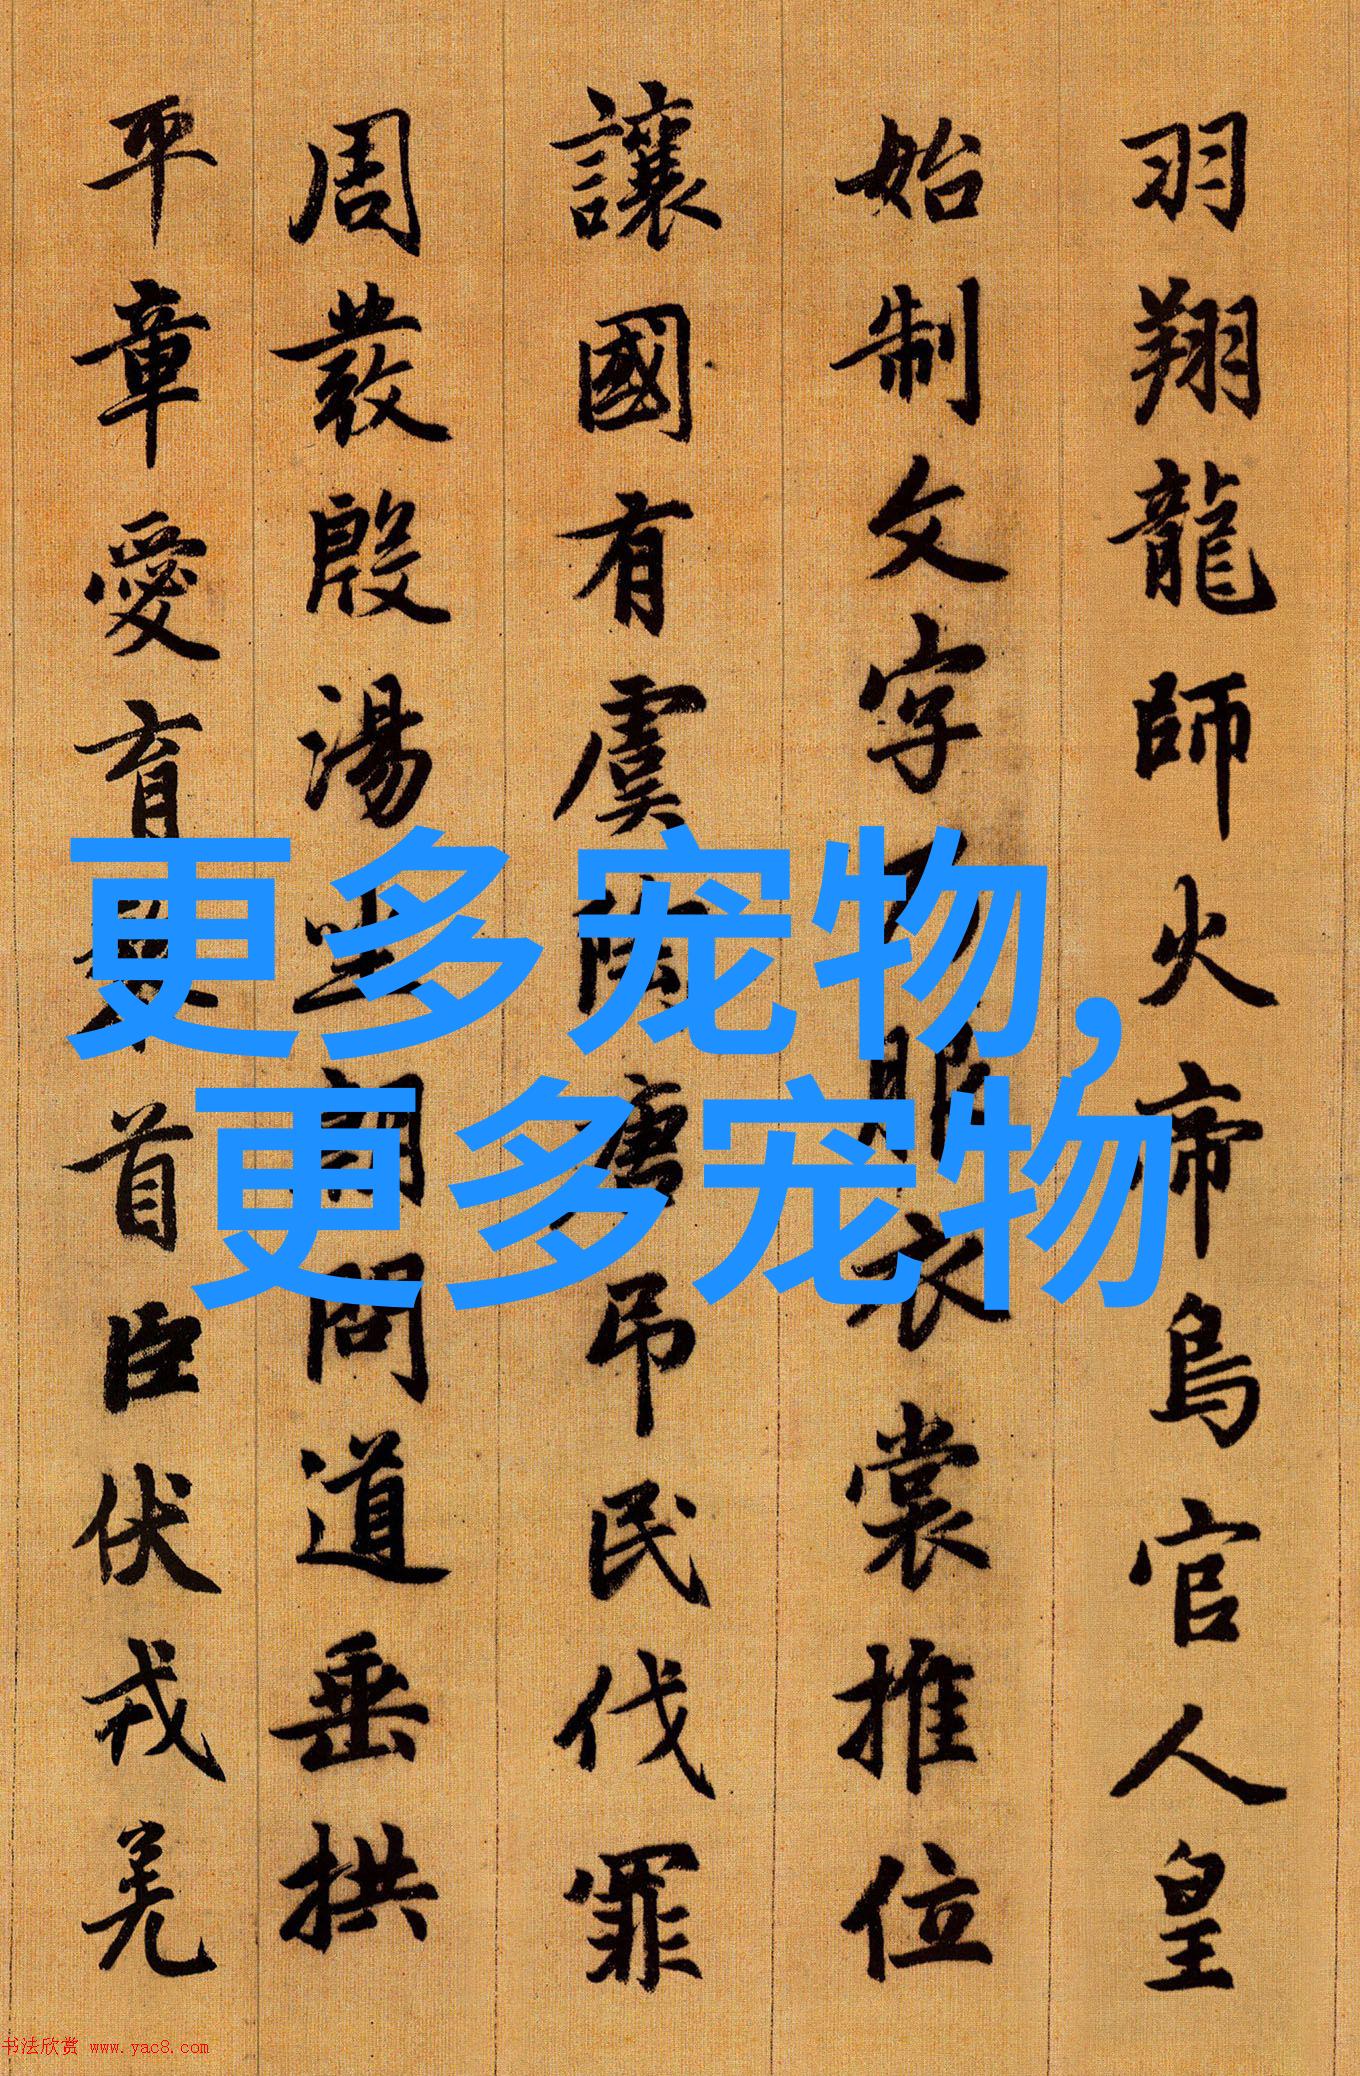 羽翔龍師火帝鳥官人皇
始制文字乃服衣裳推位
讓國有虞陶唐弔民伐罪
周發殷湯坐朝問道垂拱
平章愛育黎首臣伏戎羌
更多宠物,
更多宠物
书法欣赏 www.yac8.com